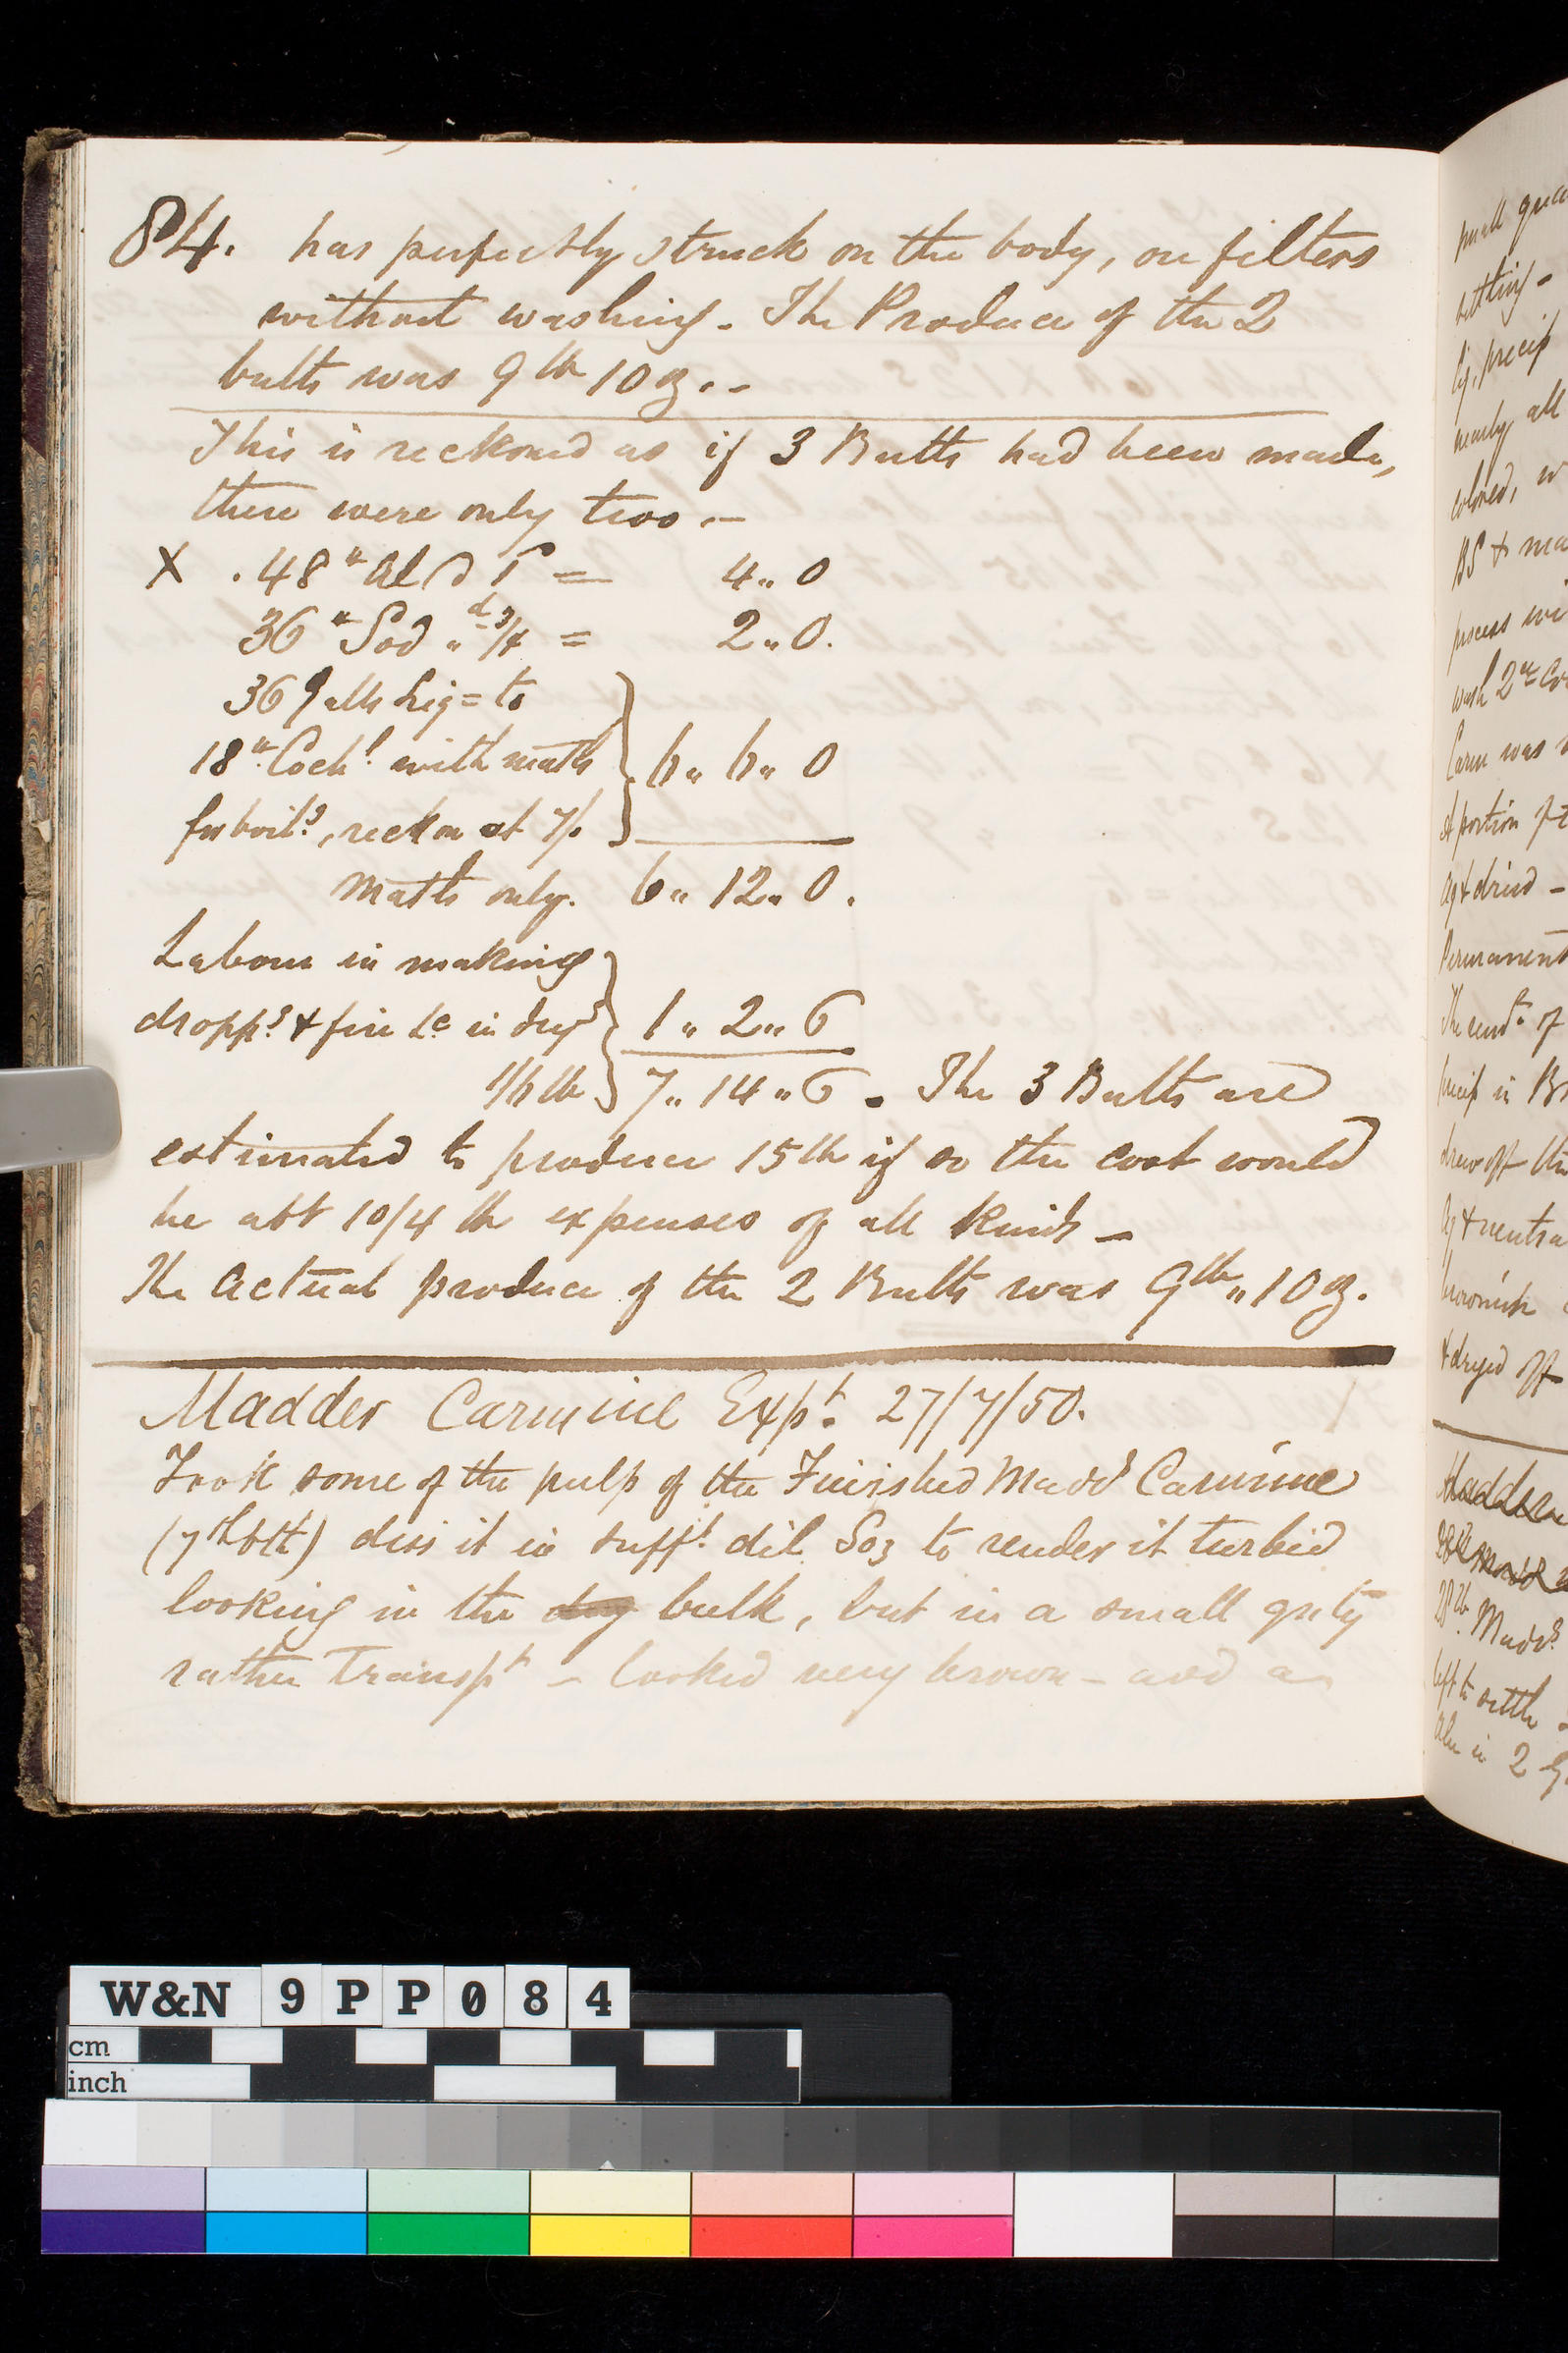 84. has perfectly struck on the body, on filters
without washing - The Produce of the 2
butts was 9 lb 10 oz. -
This is reckoned as if 3 Butts had been made,
there were only two. -
X . 48 " Al @ 1 = 4 " 0
36 " Sod " d 3/4 = 2 " 0.
36 Galls Liq = to
18 " Coch l with matls
for boil g, reckon at 7/. } 6 " 6 " 0
Matls only. 6 " 12 " 0.
Labour in making
dropp g & fire &c in dry g } 1 " 2 " 6
1/6 lb } 7 " 14 " 6. The 3 Butts are
estimated to produce 15 lb if so the cost would
be abt 10/4 lb expenses of all kinds -
The actual produce of the 2 Butts was 9 lb " 10 oz.
Madder Carmine Exp t. 27/7/50.
Took some of the pulp of the Finished Madd r Carmine
(7th btt) diss it in suff t. dil So3 to render it turbid
looking in the bulk, but in a small qnty
rather Transp t - looked very brown - and as
small
settling -
liq, precip
nearly all
colored, w
BS & ma
process wi
wash 2
Carm was
A portion of
aq & dried -
Permanent
The of
precip in
drew off the
aq & neutra
brownish
& dryed off
Madder
28 lb. Madd r
left to settle
Alm in 2 G
W&N 9PP084
cm
inch